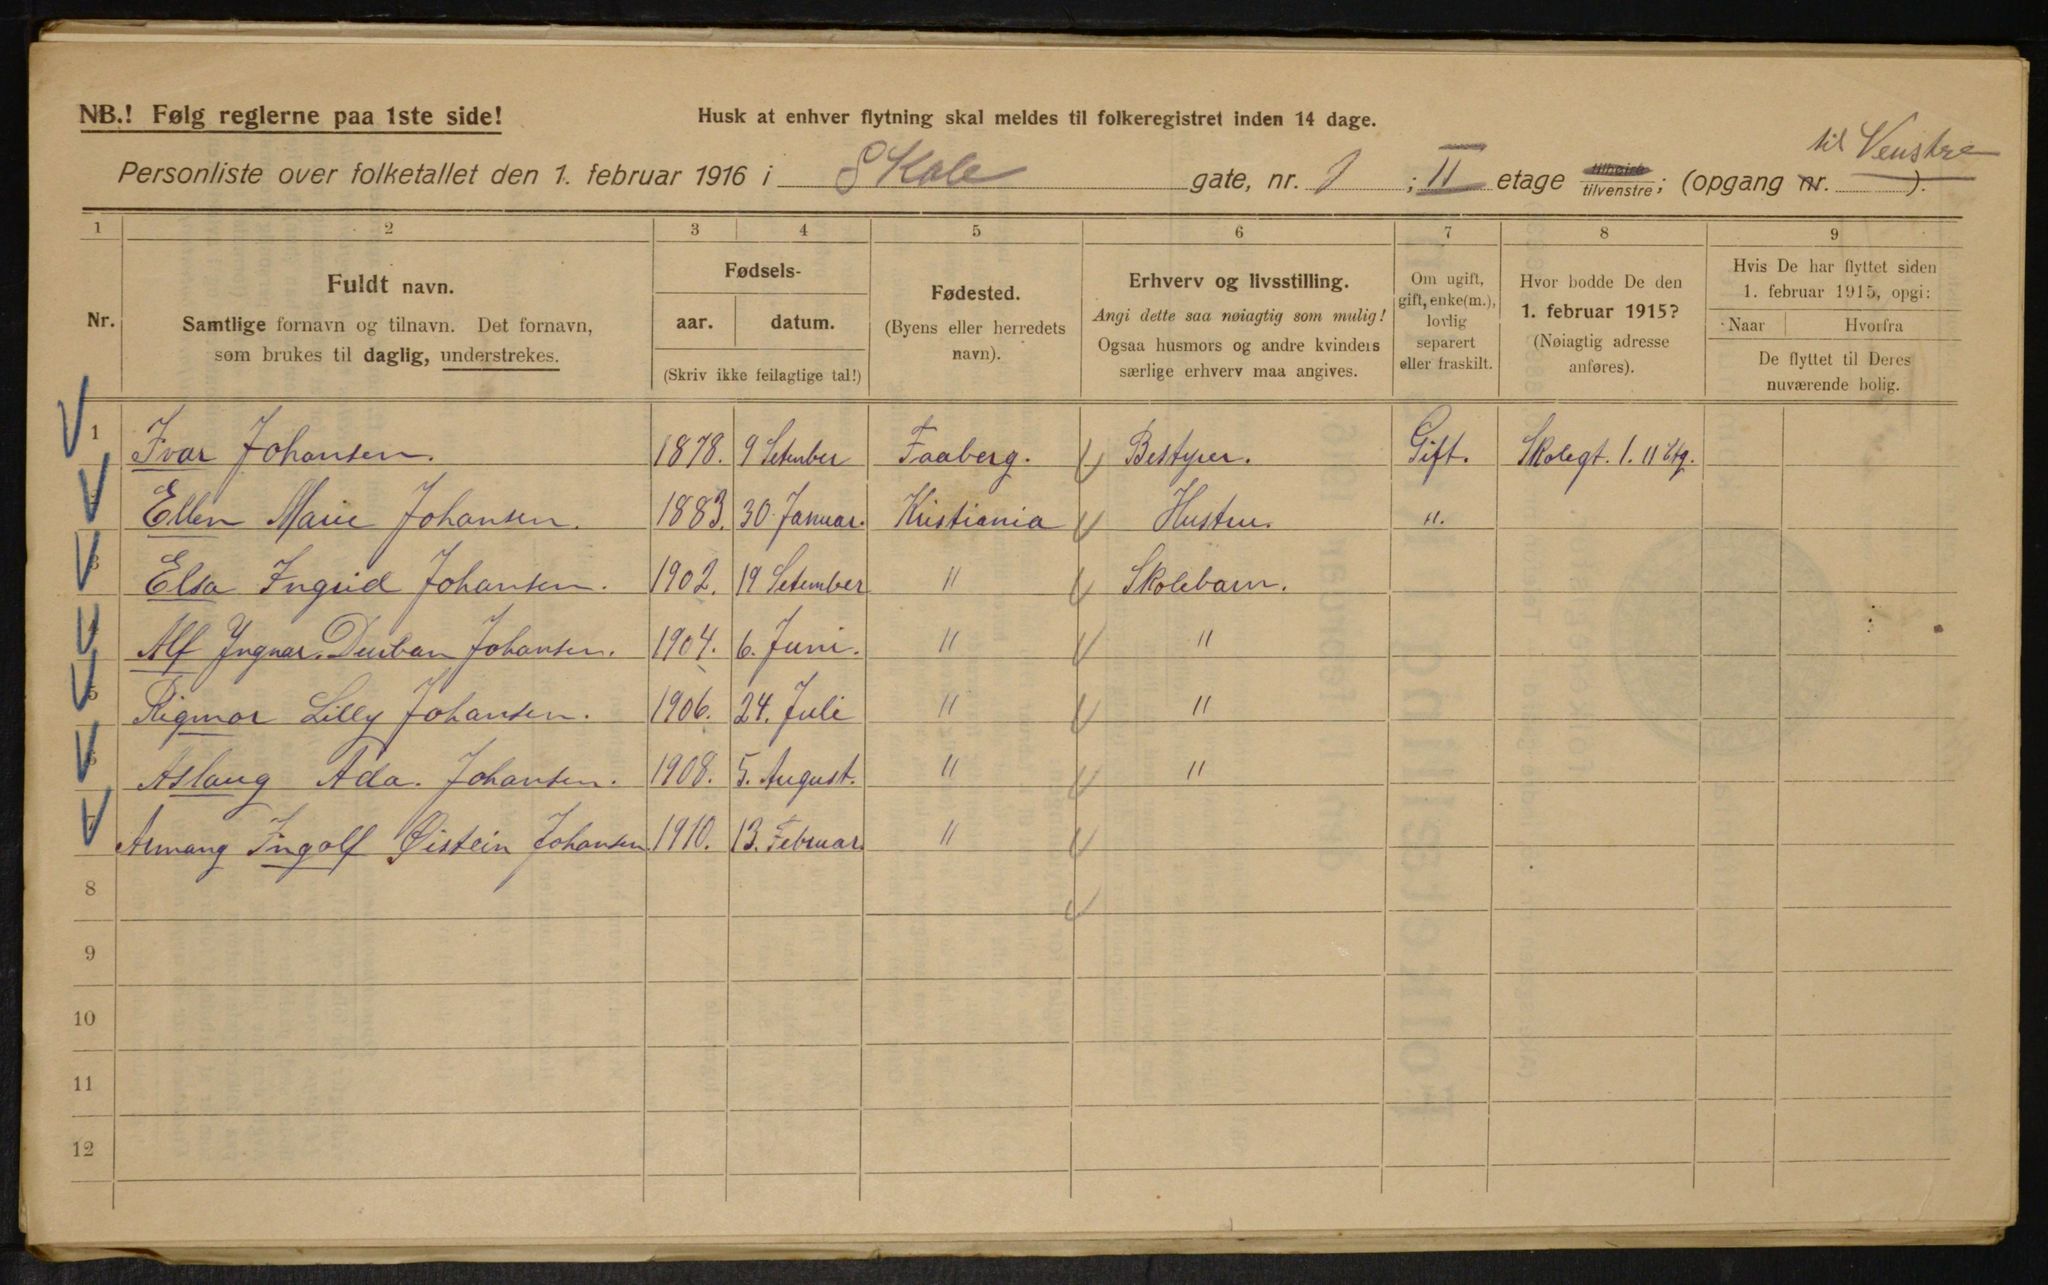 NB.! Følg reglerne paa 1ste side!
Husk at enhver flytning skal meldes til folkeregistret inden 14 dage.
til Venstre
Personliste over folketallet den 1. februar 1916 i Skole gate, nr. 1 ; II etage tilhøire tilvenstre; (opgang nr. ).
1 2 3 4 5 6 7 8 9
Nr.
Fuldt navn.
Samtlige fornavn og tilnavn. Det fornavn,
som brukes til daglig, understrekes.
Fødsels-
aar. datum.
(Skriv ikke feilagtige tal!)
Fødested.
(Byens eller herredets
navn).
Erhverv og livsstilling.
Angi dette saa nøiagtig som mulig!
Ogsaa husmors og andre kvinders
særlige erhverv maa angives.
Om ugift,
gift, enke(m.),
lovlig
separert
eller fraskilt.
Hvor bodde De den
1. februar 1915?
(Nøiagtig adresse
anføres).
Hvis De har flyttet siden
1. februar 1915, opgi:
Naar Hvorfra
De flyttet til Deres
nuværende bolig.
1 Ivar Johansen. 1878. 9 Setember Faaberg. Bestyrer. Gift. Skolegt. 1. II Etg.
Ellen Marie Johansen. 1883. 30 Januar. Kristiania Hustru. "
3 Elsa Ingrid Johansen. 1902. 19 Setember " Skolebarn.
Alf Yngvar. Durban Johansen. 1904. 6. Juni. " "
5 Rigmor Lilly Johansen. 1906. 24. Juli " "
Aslaug Ada. Johansen. 1908. 5. August. " "
Armang Ingolf Øistein Johansen. 1910. 13. Februar. "
8
9
10
11
12